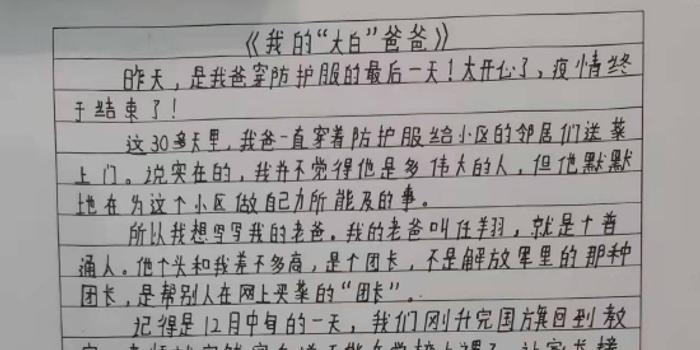 《我的“大白”爸爸》
昨天，是我爸穿防护服的最后一天！太开心了，疫情终
于结束了！
这30多天里，我爸一直穿着防护服给小区的邻居们送菜
上门。说实在的，我并不觉得他是多伟大的人，但他默默
地在为这个小区做自己力所能及的事。
所以我想写写我的老爸。我的老爸叫任羊羽，就是个普
通人。他个头和我差不多高，是个团长，不是解放军里的那种
团长，是帮别人在网上买菜的“团长”。
记得是12月中旬的一天，我们刚升完国旗回到教